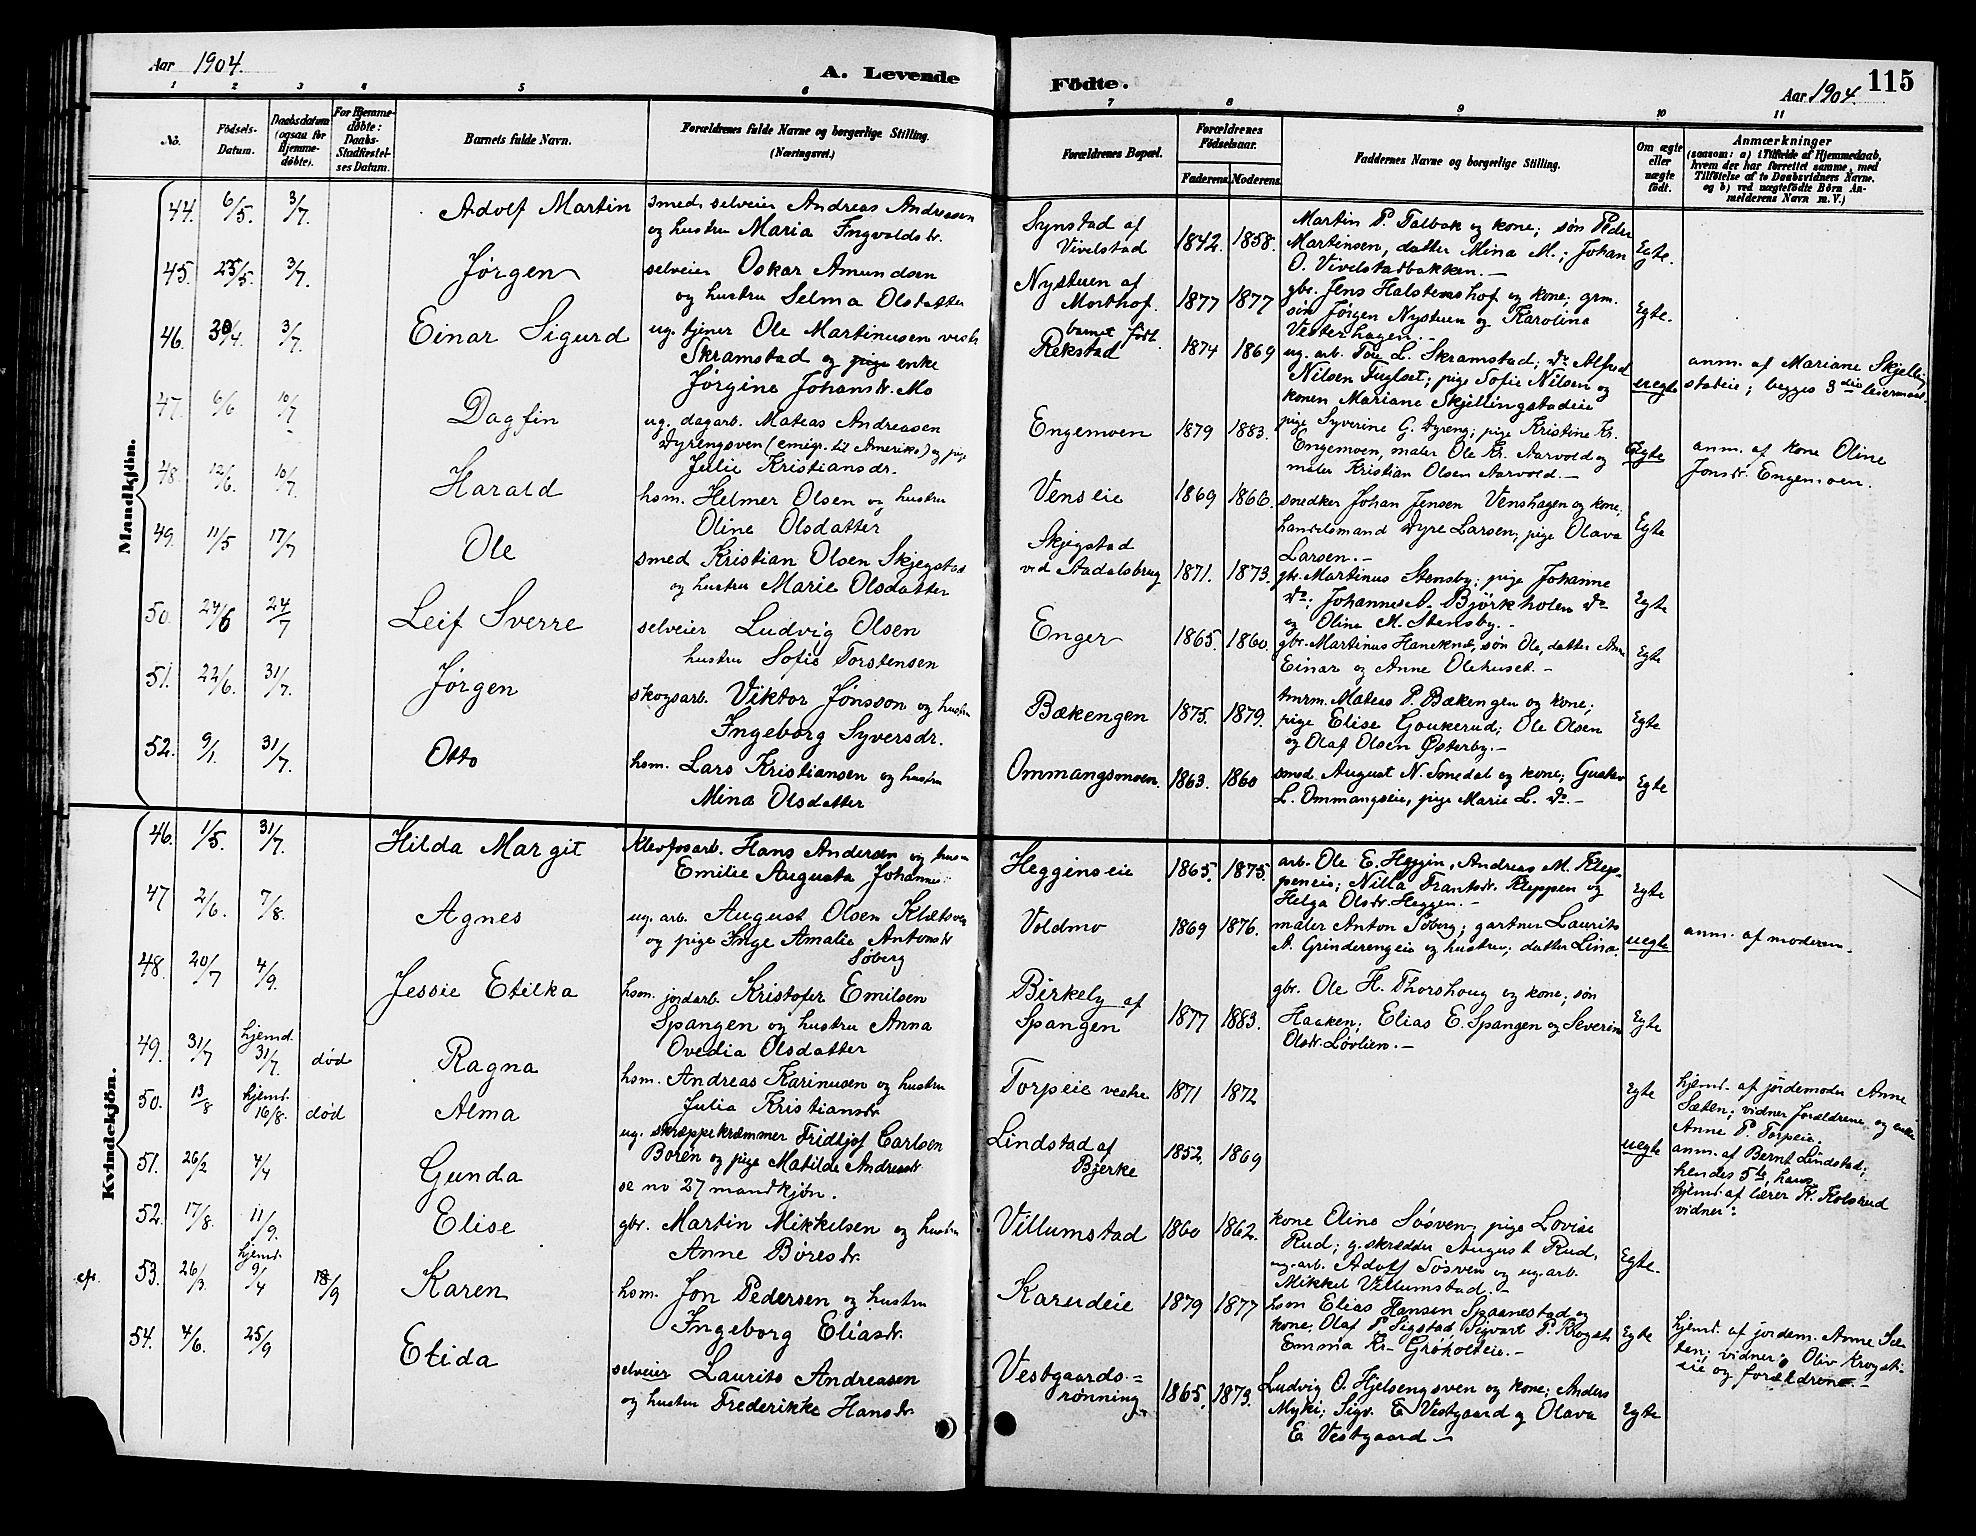 Aar 1904.
A. Levende
Födte.
Aar 1904.
115
1 2 3 4 5 6 7 8 9 10 11
No.
Födsels-
Datum.
Daabsdatum
(ogsaa for
Hjemme-
döbte).
For Hjemme-
döbte:
Daabs-
Stadfæstel-
ses Datum.
Barnets fulde Navn.
Forældrenes fulde Navne og borgerlige Stilling.
(Næringsvei.)
Forældrenes Bopæl.
Forældrenes
Födselsaar.
Faderens. Moderens.
Faddernes Navne og borgerlige Stilling.
Om ægte
eller
uægte
födt.
Anmærkninger
(saasom: a) i Tilfælde af Hjemmedaab,
hvem der har forrettet samme, med
Tilföielse af to Daabsvidners Navne,
og b) ved uægtefödte Börn An-
melderens Navn m. V.)
Mandkjön.
44. 6/5. 3/7. Adolf Martin
smed selveier Andreas Andreasen
og hustru Maria Ingvaldsdr.
Synstad af
Vivelstad
1842. 1858.
Martin P. Talbak og kone; søn Peder
Martensen, datter Mina M.; Johan
O. Vivelstadbakken. -
Egte.
45. 25/5. 3/7. Jørgen
selveier Oskar Amundsen
og hustru Selma Olsdatter
Nystuen af
Morthof.
1877 1877
gbr. Jens Halstenshof og kone; grm.
søn Jørgen Nystuen og Karolina
Vesterhagen. -
Egte.
46. 30/4. 3/7. Einar Sigurd
ug. tjener Ole Martinusen vestr.
Skramstad og pige enke
Jørgine Johansdr. Mo
barnet födt
Rekstad
1874 1869
ug. arb. Tore L. Skramstad; do Alfred
Nilsen Fuglset; pige Sofie Nilsen og
konen Mariane Skjellingstadeie
uegte
anm. af Mariane Skjelling
stadeie; begges 3die leiermaal.
47. 6/6 10/7 Dagfin
ug. dagarb. Mateas Andreasen
Dyrengsven (emigr. til Amerika) og pige
Julie Kristiansdr.
Engemoen
1879 1883.
pige Syverine G. Dyreng; pige Kristine Kr.
Engemoen, maler Ole Kr. Aarvold og
maler Kristian Olsen Aarvold. -
anm. af kone Oline
Jonsdr. Engemoen.
48. 12/6. 10/7. Harald
hsm. Helmer Olsen og hustru
Oline Olsdatter
Venseie
1869 1866.
snedker Johan Jensen Venshagen og kone;
handelsmand Dyre Larsen, pige Olava
Larsen. -
Egte
49. 11/5 17/7 Ole
smed Kristian Olsen Skjegstad
og hustru Marie Olsdatter
Skjegstad
ved Aadalsbrug
1871. 1873.
gbr. Martinus Stensby; pige Johanne
do; Johannes A. Björkholen do
og Oline M. Stensby. -
Egte
50. 24/6 24/7 Leif Sverre
selveier Ludvig Olsen
hustru Sofie Torstensen
Enger
1865. 1860.
gbr. Martinus Haneknæ, søn Ole, datter Anne
Einar og Anne Olehuset. -
Egte
51. 22/6. 31/7. Jørgen
skogsarb. Viktor Jönsson og hustru
Ingeborg Syversdr.
Bækengen
1875. 1879.
tmrm. Mateas P. Bækengen og kone;
pige Elise Goukerud; Ole Olsen
og Olaf Olsen Østerby. -
Egte
52. 9/1. 31/7. Otto
hsm. Lars Kristiansen og hustru
Mina Olsdatter
Ommangsmoen.
1863. 1860
smed August N. Smedal og kone; Gustav
L. Ommangseie, pige Marie L. do. -
Egte
Kvindekjön.
46. 1/5. 31/7. Hilda Margit
Klevfosarb. Hans Andersen og hustru
Emilie Augusta Johannes
Hegginseie
1865. 1875.
arb. Ole E. Heggin, Andreas M. Klep-
peneie; Nilla Frantsdr. Kleppen og
Helga Olsdr. Heggen. -
Egte
47 2/6. 7/8. Agnes
ug. arb. August Olsen Klætsven
og pige Inge Amalie Antonsdr
Søberg
Voldmo
1869 1876.
maler Anton Söberg; gartner Laurits
A. Grinderengeie og hustru; datter Lina.
uegte
anm. af moderen.
48. 20/7 4/9. Jessie Etilka
hsm. jordarb. Kristofer Emilsen
Spangen og hustru Anna
Ovedia Olsdatter
Birkely af
Spangen
1877 1883.
gbr. Ole H. Thorshoug og kone; søn
Haaken; Elias E. Spangen og Severin
Olsdr. Løvlien. -
Egte
49. 31/7 hjemd. 31/7. død Ragna
hsm. Andreas Karinusen og hustru
Julia Kristiansdr.
Torpeie vestre
1871 1872
Egte
hjemd. af jordemoder Anne
Sæten; vidner forældrene og enke
Anne P. Torpeie.
50. 13/8 hjemd. 16/8. død Alma
ug. skræppekræmmer Fridtjof Carlsen
Boren og pige Matilde Andreasdr.
Lindstad af
Bjerke
1852. 1869
uegte
anm. af Bernt Lindstad;
hendes 5te, hans
hjemd. af lærer K. Kolsrud
vidner:
51. 26/2 4/4 Gunda
se no 27 mandkjøn.
52. 17/8. 11/9. Elise
gbr. Martin Mikkelsen og hustru
Anne Boresdr.
Villumstad
1860 1862.
kone Eline Søsven; pige Lovise
Rud; g. skrædder August Rud,
ug. arb. Adolf Søsven og ug. arb.
Mikkel Villumstad. -
Egte.
53. 26/3 hjemd. 9/4 18/9 Karen
hsm. Jon Pedersen og hustru
Ingeborg Eliasdr.
1879 1877
hsm Elias Hansen Spaanestad og
kone, Olaf P. Sigstad, Sigvart P. Krogst.
Emma Kr. Grøholteie. -
Egte
hjemd. af jordem. Anne Sæ-
ten; vidner: Oliv Krogst-
eie og forældrene. -
54. 4/6. 25/9 Elida
selveier Laurits Andreasen
og hustru Frederikke Hansdr.
Vestgaards-
rønning
1865. 1873.
Ludvig O. Hjelsengsven og kone; Anders
Myki; Sigv. E Vestgaard og Olava
E. Vestgaard -
Egte